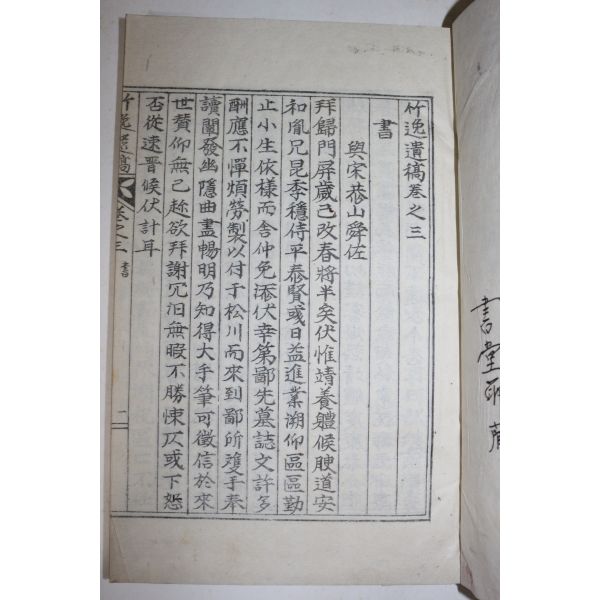 竹逸遺稿卷之三
書
與宋恭山舜佐
拜歸門屏歲已改春將半矣伏惟靖養軆候腴道安
和胤兄昆季穩侍平泰賢彧日益進業溯仰區區勤
止小生依樣而舍仲免添伏幸第鄙先墓誌文許多
酬應不憚煩勞製以付于松川而來到鄙所雙手奉
讀闡發幽隱曲盡暢明乃知得大手筆可徵信於來
世賛仰無已趁欲拜謝冗汨無暇不勝悚仄或下恕
否從速晋候伏計耳
竹逸遺稿
卷之三
書
二
書堂